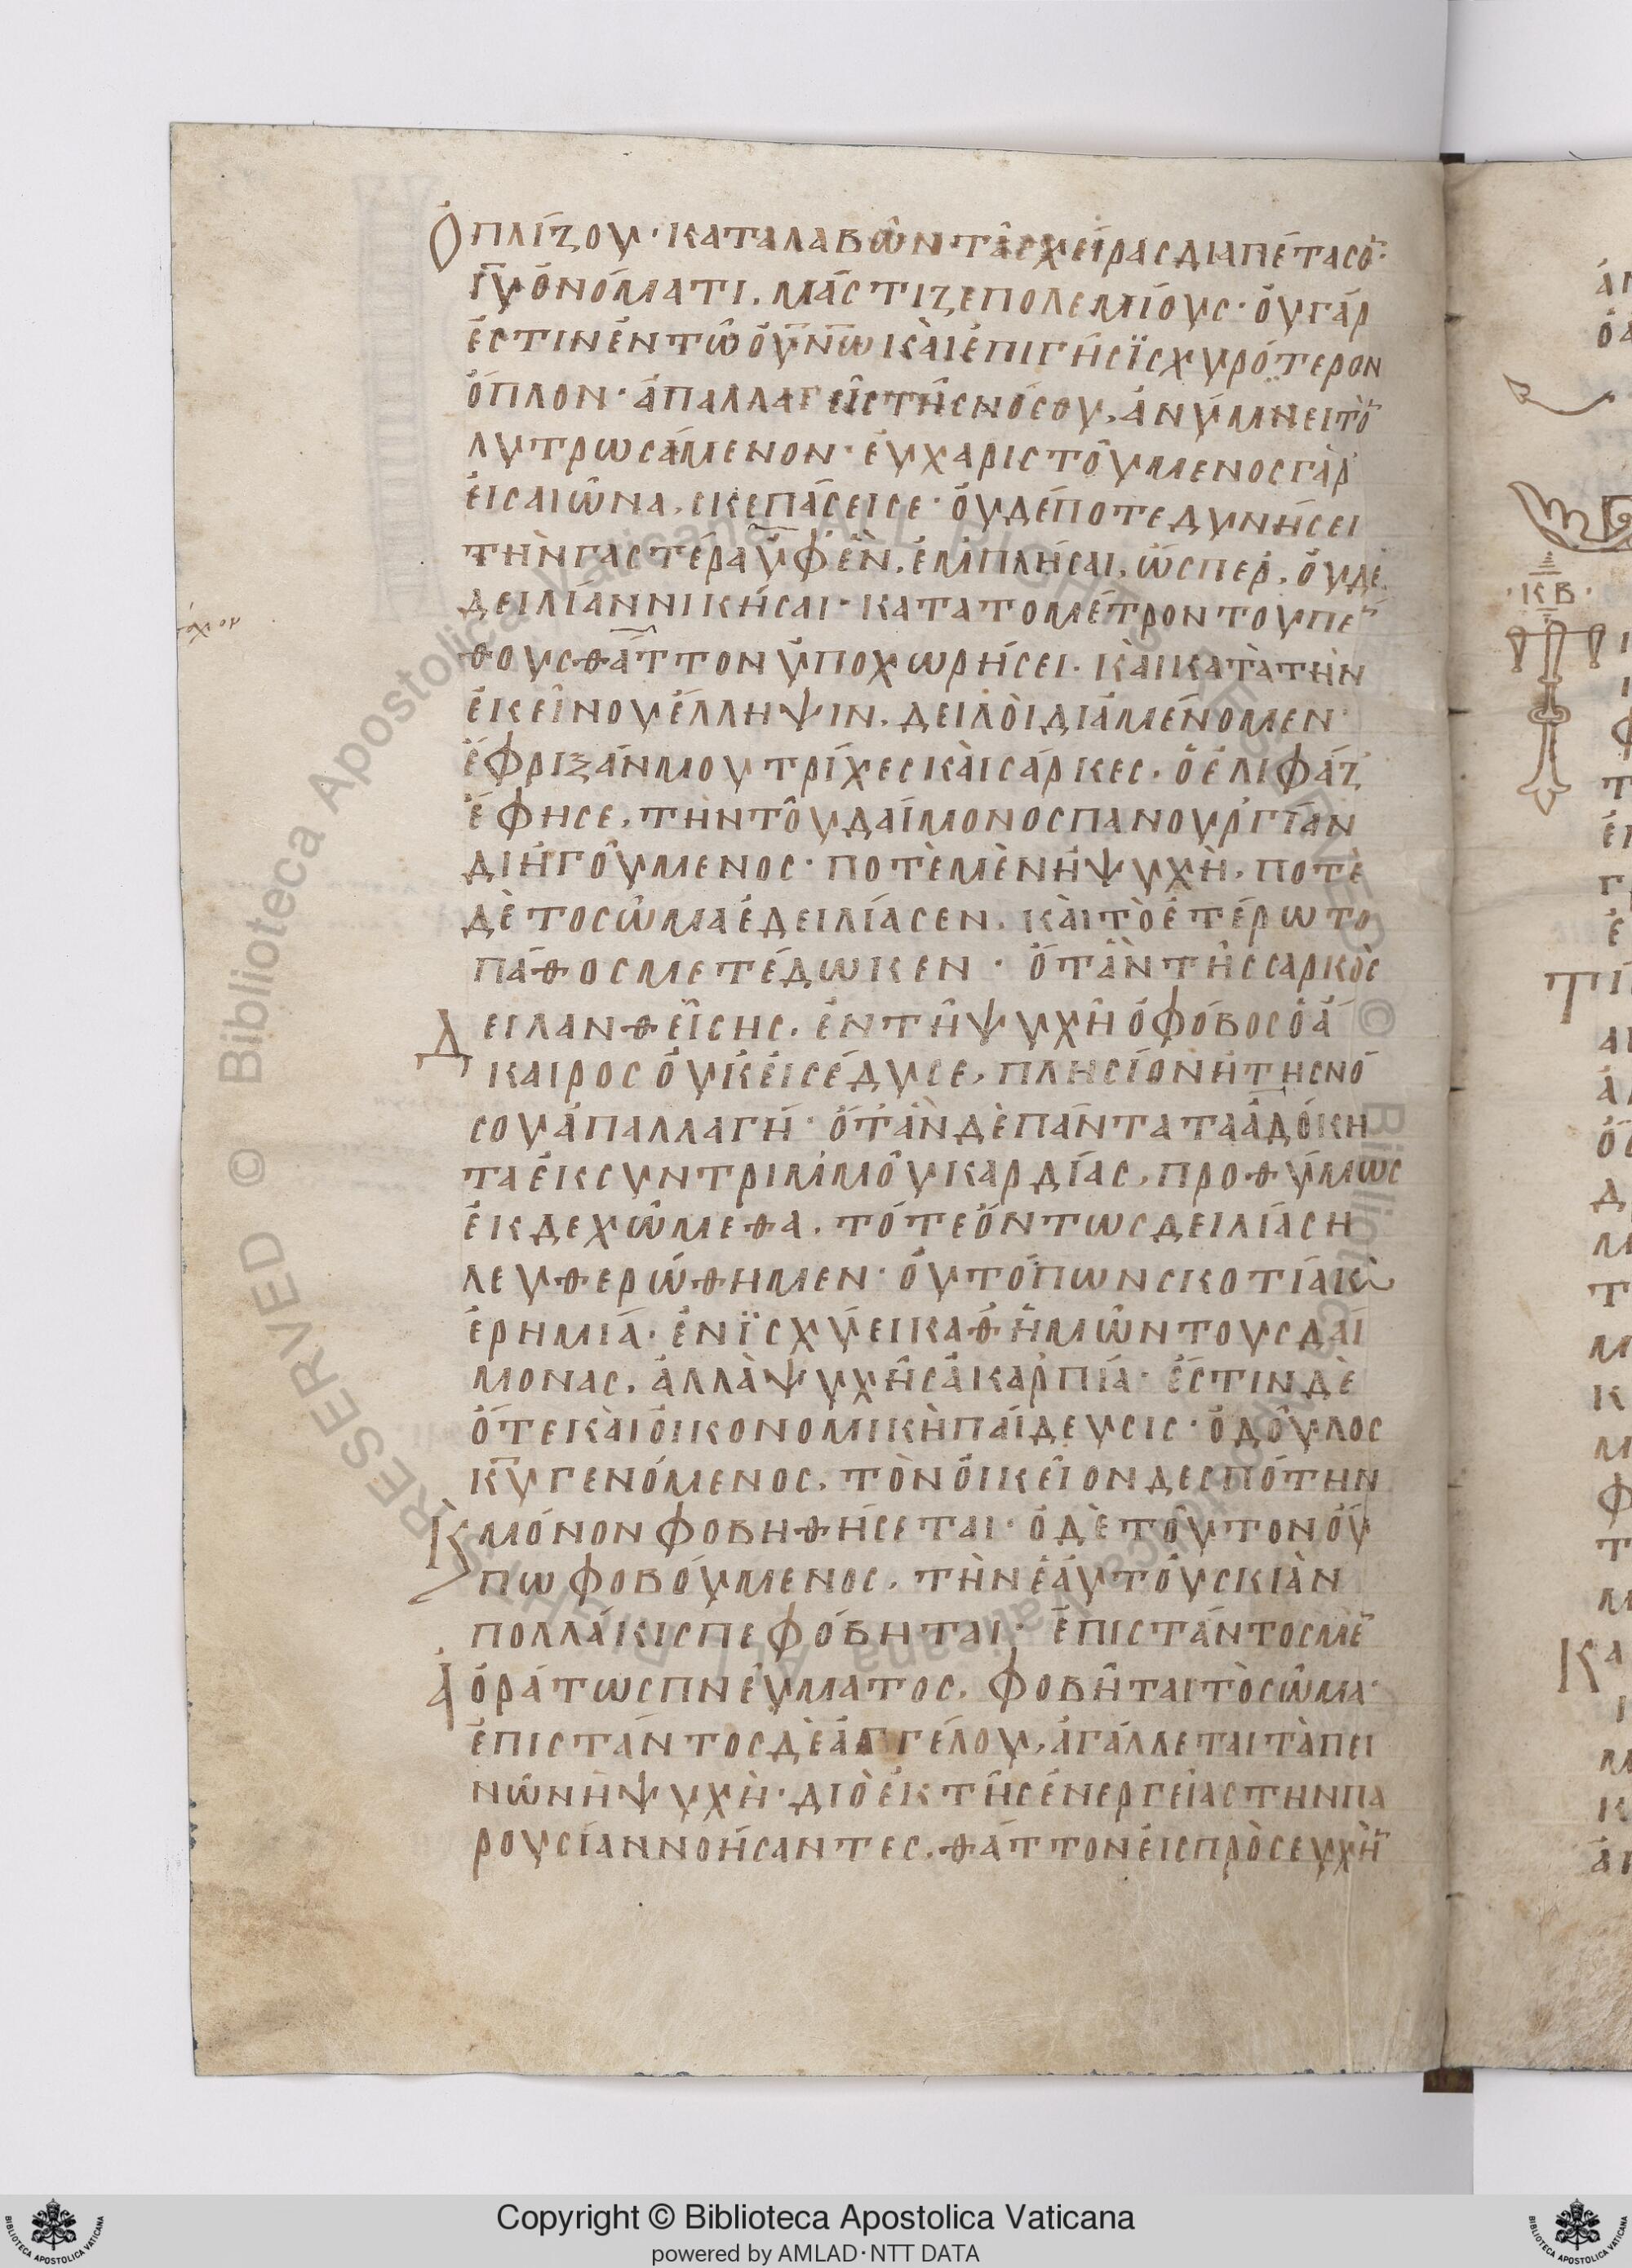 Ὁπλίζου· καταλαβὼν τὰς χεῖρας διαπέτασο̅·
ι̅υ̅ ὀνόματι, μάστιζε πολεμίους· οὐ γάρ
ἐστιν ἐν τῶ ο̅υ̅ν̅ω̅ κὰι ἐπι γῆς ἰσχυρότερον
ὅπλον· ἀπαλλαγεὶς τῆς νόσου, ἀνύμνει τὸ̅
λυτρωσάμενον· εὐχαριστούμενος γὰρ
εἰς αιῶνα, σκεπάσει σε· ὀυδέποτε δυνήσει
τὴν γαστέρα ὑφ ἓν, ἐμπλῆσαι, ὥσπερ, ὀυδὲ
δειλίαν νικῆσαι· κατα το μέτρον του πέ̅
θους θᾶττον ὑποχωρήσει· κὰι κατὰ τὴν
ἐκείνου ἔλληψιν, δειλὸι διαμένομεν·
ἔφριξάν μου τρίχες κὰι σάρκες, ὁ ἐλιφάζ
ἔφησε, τὴν τοῦ δαίμονος πανουργίαν
διηγούμενος· ποτὲ μὲν ἡ ψυχὴ, ποτὲ
δὲ το σῶμα ἐδειλίασεν, κὰι τὸ ἑτέρω το
πάθος μετέδωκεν· ὅταν τῆς σαρκὸς
Δειλανθείσης, ἐν τῆ ψυχῆ ὁ φόβος ὁ ἄ
καιρος ὀυκ ἐισέδυσε, πλησίον ἡ της νό
σου ἀπαλλαγή· ὅταν δὲ πάντα τα ἀδόκη
τα ἐκ συντριμμοῦ καρδίας, προθύμως
ἐκδεχώμεθα, τότε ὄντως δειλίας ἠ
λευθερώθημεν· ὀυ τόπων σκοτία κὰι
ἐρημιά· ἐνισχύει καθ ἡμῶν τους δαί
μονας, ἀλλὰ ψυχῆς ἀκαρπία· ἔστιν δὲ
ὅτε κὰι ὀικονομικὴ παίδευσις· ὁ δοῦλος
κ̅υ̅ γενόμενος, τὸν ὀικεῖον δεσπότην
Κ μόνον φοβηθήσεται· ὁ δὲ τοῦτον ὀύ
πω φοβούμενος, τὴν ἑαυτοῦ σκιὰν
πολλάκις πεφόβηται· ἐπιστάντος μὲ̅
Ἀοράτως πνεύματος, φοβῆται τὸ σῶμα·
ἐπιστάντος δὲ ἀγγέλου, ἀγάλλεται τὰπει
νῶν ἡ ψυχὴ· διὸ ἐκ τῆς ἐνεργείας την πα
ρουσίαν νοήσαντες, θᾶττον ἐις πρὸσευχὴ̅
·ΚΒ·
Copyright © Biblioteca Apostolica Vaticana
powered by AMLAD·NTT DATA